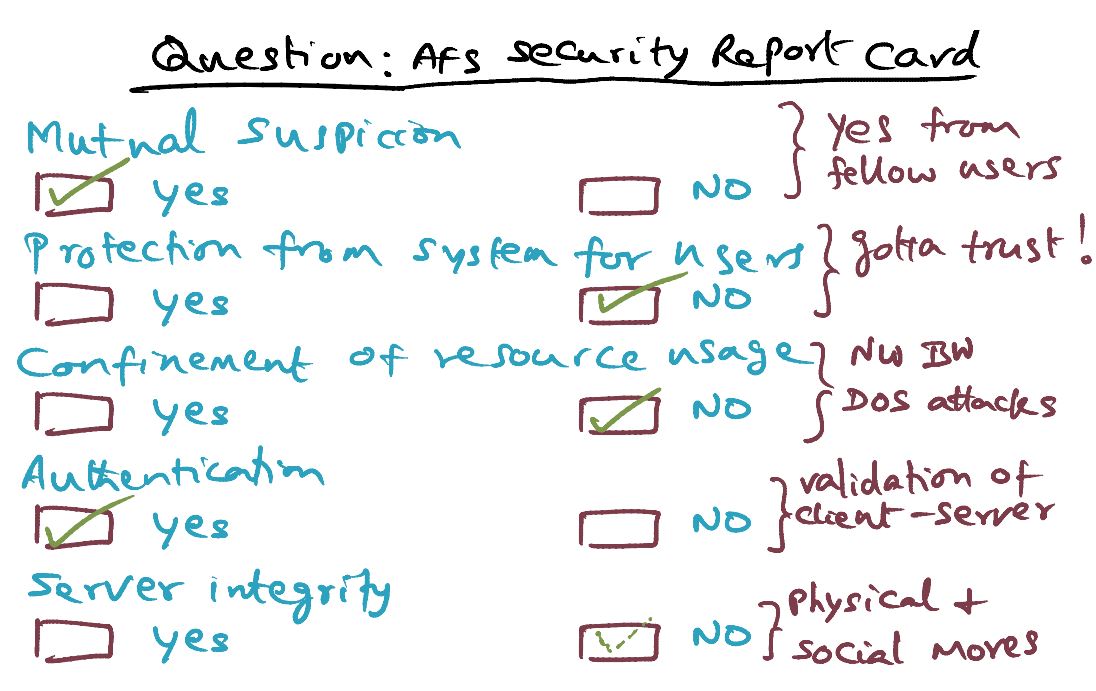 Question: AFS Security Report Card
Mutual Suspicion
yes NO
yes from
fellow users
Protection from system for users
yes NO
gotta trust!
Confinement of resource usage
yes NO
NW BW
DOS attacks
Authentication
yes NO
validation of
client-server
Server integrity
yes NO
physical +
social mores